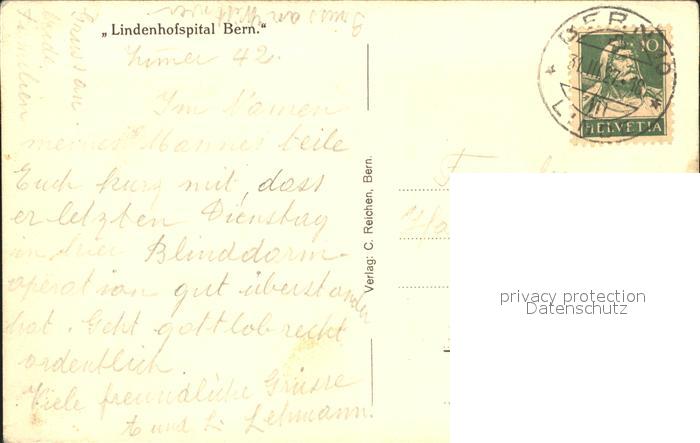 „Lindenhofspital Bern.“
Zimmer 42.
Im Namen
meines Mannes teile
Euch kurz mit, dass
er letzten Dienstag
in hier Blinddarm-
operation gut überstanden
hat. Geht gottlob recht
ordentlich.
Viele freundliche Grüsse
E und L. Lehmann.
Gruss an
beide
Familien
Gruss an
Verlag: C. Reichen, Bern.
BERN
10
HELVETIA
privacy protection
Datenschutz